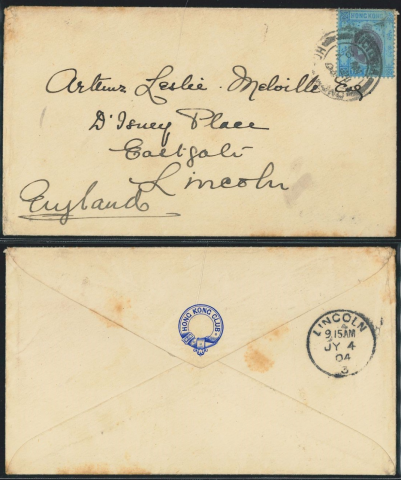 HONG KONG
Arthur Leslie-Melville Esq
D'Isney Place
Eastgate
Lincoln
England
HONG KONG CLUB
LINCOLN
9.15AM
JY 4
04
3